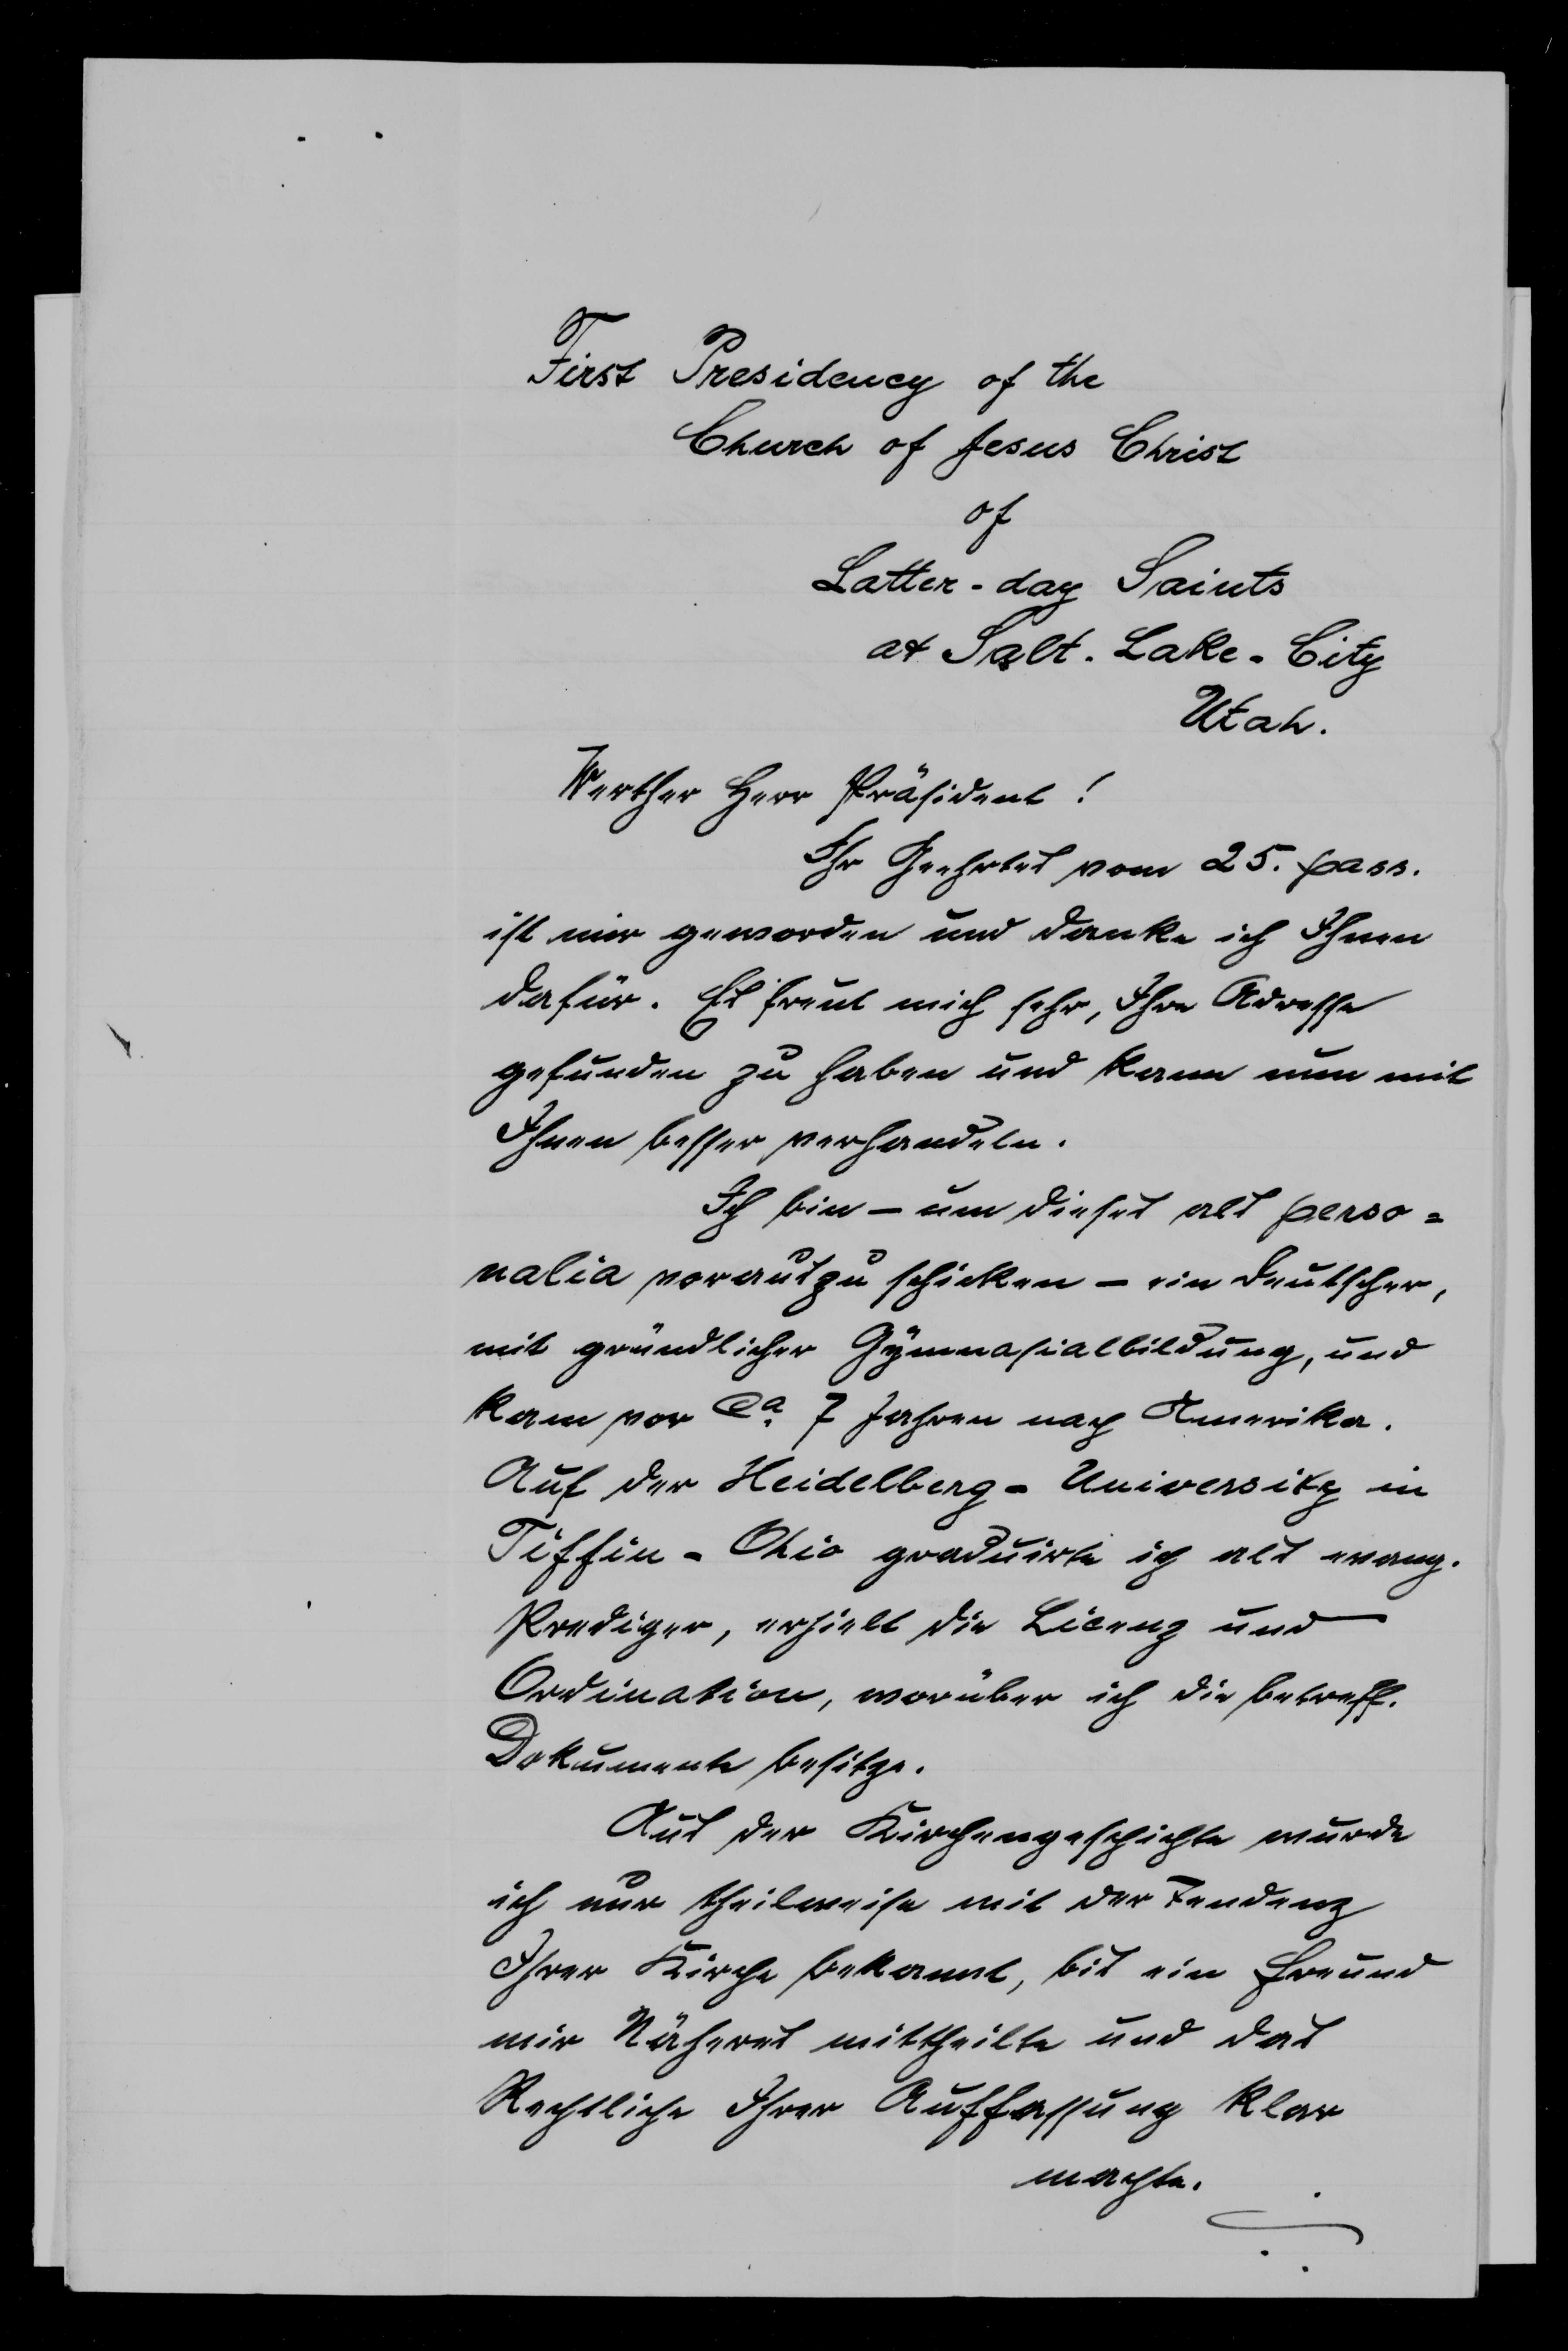 First Presidency of the
Church of Jesus Christ
of
Latter-day Saints
at Salt-Lake-City
Utah.
Werther Herr Präsident!
Ihr Geehrtes vom 25. pass.
ist mir geworden und danke ich Ihnen
dafür. Es freut mich sehr, Ihre Adresse
gefunden zu haben und kann nun mit
Ihnen besser verhandeln.
Ich bin – um dieses als perso=
nalia vorauszuschicken – ein Deutscher,
mit gründlicher Gymnasialbildung, und
kam vor Ca. 7 Jahren nach Amerika.
Auf der Heidelberg-University in
Tiffin-Ohio graduirte ich als evang.
Prediger, erhielt die Licenz und
Ordination, worüber ich die betreff.
Dokumente besitze.
Aus der Kirchengeschichte wurde
ich nur theilweise mit der Tendenz
Ihrer Kirche bekannt, bis ein Freund
mir Näheres mittheilte und das
Rechtliche Ihrer Auffassung klar
machte.